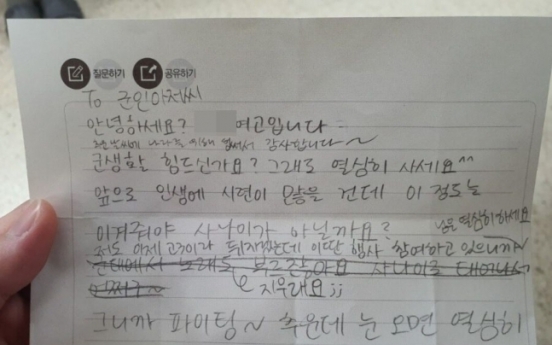 질문하기 공유하기
To 군인아저씨
안녕하세요? 여고입니다
추운 날씨에 나라를 위해 힘써서 감사합니다~
군생활 힘드신가요? 그래도 열심히 사세요^^
앞으로 인생에 시련이 많을 건데 이 정도는
이겨줘야 사나이가 아닐까요?
저도 이제 고3이라 뒤지겠는데 이딴 행사 참여하고 있으니까~
님은 열심히 하세요
군대에서 노래도 부르잖아요 사나이로 태어나서
지우래요;;
그니까 파이팅~ 추운데 눈 오면 열심히